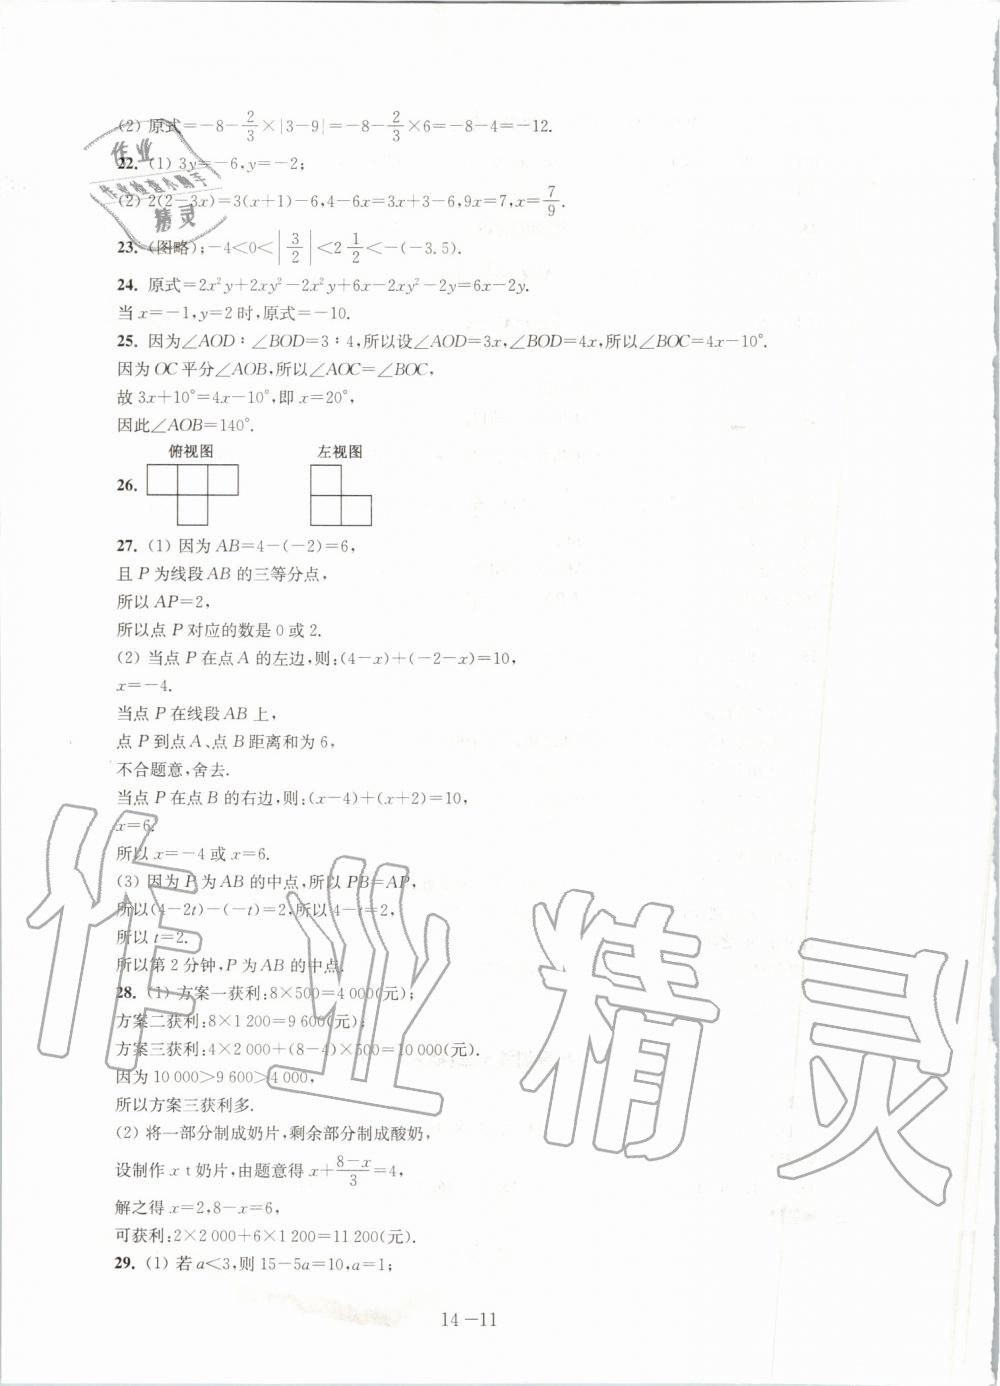 (2) 原式=-8-2/3×|3-9|=-8-2/3×6=-8-4=-12.
作业
22. (1) 3y=-6,y=-2;
作业检查小助手
(2) 2(2-3x)=3(x+1)-6,4-6x=3x+3-6,9x=7,x=7/9.
精灵
23. (图略);-4<0<|3/2|<2 1/2<-(-3.5).
24. 原式=2x²y+2xy²-2x²y+6x-2xy²-2y=6x-2y.
当 x=-1,y=2 时,原式=-10.
25. 因为∠AOD∶∠BOD=3∶4,所以设∠AOD=3x,∠BOD=4x,所以∠BOC=4x-10°.
因为 OC 平分∠AOB,所以∠AOC=∠BOC,
故 3x+10°=4x-10°,即 x=20°,
因此∠AOB=140°.
俯视图 左视图
26.
27. (1) 因为 AB=4-(-2)=6,
且 P 为线段 AB 的三等分点,
所以 AP=2,
所以点 P 对应的数是 0 或 2.
(2) 当点 P 在点 A 的左边,则:(4-x)+(-2-x)=10,
x=-4.
当点 P 在线段 AB 上,
点 P 到点 A、点 B 距离和为 6,
不合题意,舍去.
当点 P 在点 B 的右边,则:(x-4)+(x+2)=10,
x=6.
所以 x=-4 或 x=6.
(3) 因为 P 为 AB 的中点,所以 PB=AP,
所以(4-2t)-(-t)=2,所以 4-t=2,
所以 t=2.
所以第 2 分钟,P 为 AB 的中点.
28. (1) 方案一获利:8×500=4 000(元);
方案二获利:8×1 200=9 600(元);
方案三获利:4×2 000+(8-4)×500=10 000(元).
因为 10 000>9 600>4 000,
所以方案三获利多.
(2) 将一部分制成奶片,剩余部分制成酸奶,
设制作 x t 奶片,由题意得 x+(8-x)/3=4,
解之得 x=2,8-x=6,
可获利:2×2 000+6×1 200=11 200(元).
29. (1) 若 a<3,则 15-5a=10,a=1;
14-11
作业精灵